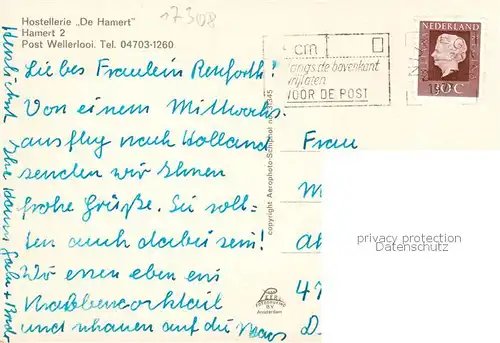 Hostellerie „De Hamert"
Hamert 2
Post Wellerlooi. Tel. 04703-1260
17308
cm
langs de bovenkant
vrijlaten
VOOR DE POST
NEDERLAND
30 C
Liebes Fraulein Renforth!
Von einem Mittwochs-
ausflug nach Holland
senden wir Ihnen
frohe Grüße. Sie soll-
ten auch dabei sein!
Wir essen eben ein
Krabbencocktail
und schauen auf die Maas
Herzlichst
Ihre
copyright Aerophoto-Schiphol
Amsterdam
Frau
M
4
D
privacy protection
Datenschutz